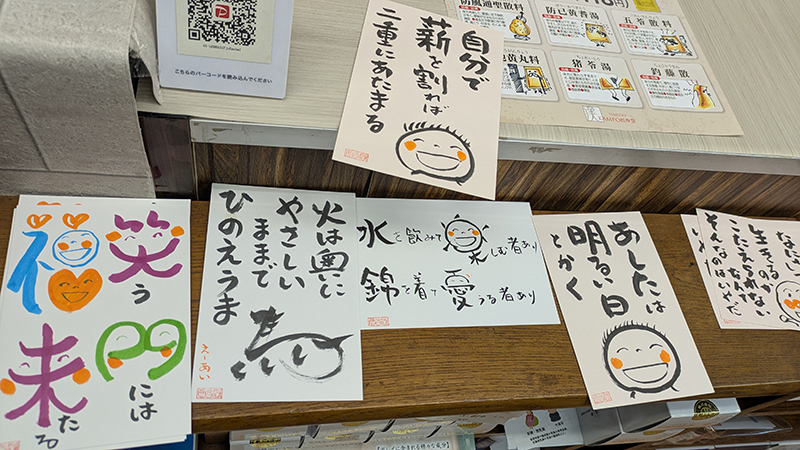 こちらのバーコードを読み込んでください
防風通聖散料
防已黄耆湯
五苓散料
黄丸料
猪苓湯
釣藤散
自分で
薪を割れば
二重にあたまる
笑う
門には
福
来たる
火は奥に
やさしい
ままで
ひのえうま
馬
えーあい
水を飲みて楽しむ者あり
錦を着て憂うる者あり
あしたは
明るい日
とかく
生きるのか
こたえられない
なんて
そんなのはいやだ